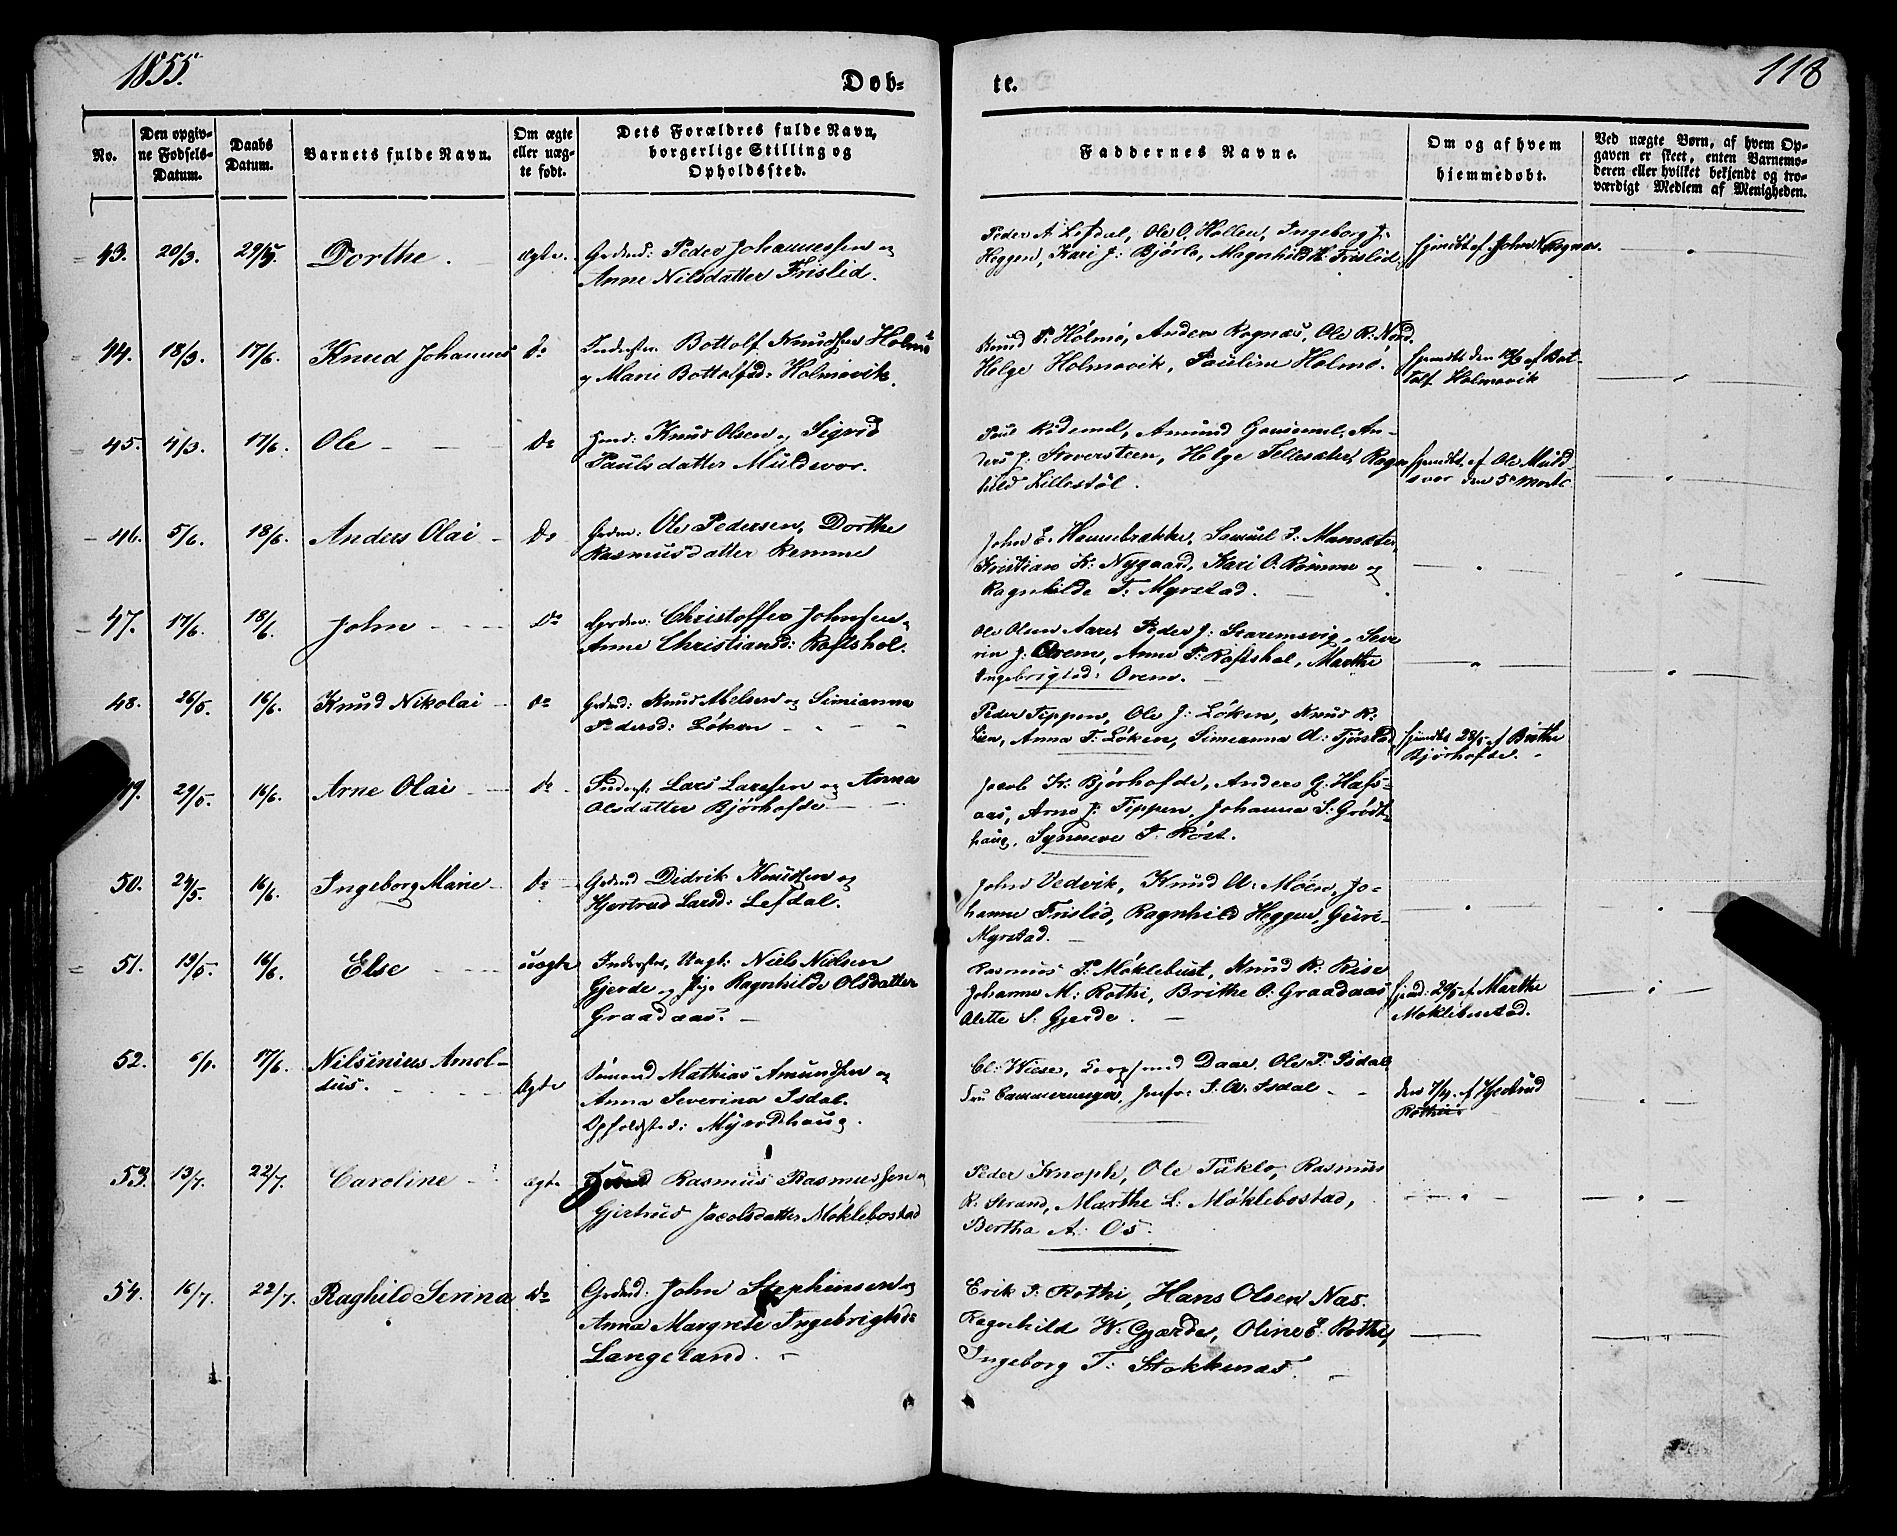 1855.
Døb-
te.
118
No.
Den opgiv-
ne Fødsels-
Datum.
Daabs
Datum.
Barnets fulde Navn.
Om ægte
eller uæg-
te født.
Dets Forældres fulde Navn,
borgerlige Stilling og
Opholdssted.
Faddernes Navne.
Om og af hvem
hjemmedøbt.
Ved uægte Børn, af hvem Op-
gaven er skeet, enten Barnemo-
deren eller hvilket bekjendt og tro-
værdigt Medlem af Menigheden.
43. 20/3. 29/5. Dorthe. ægte.
Peder Johannessen og
Anne Nilsdatter Frislid.
Peder A. Lefdal, Ole O. Hollen, Ingeborg J.
Heggen, Kari J. Bjørlo, Magnhild K. Frislid.
hjemdbt af John Rognæs.
44. 18/3. 17/6. Knud Johannes Do
Inderster Bottolf Knudsen Holmø
og Marie Bottolfsd: Holmøvik.
Knud P. Holmø, Anders Rognæs, Ole R. Nord,
Helge Holmøvik, Pauline Holmø.
af Bot-
tolf Holmøvik
45. 4/3. 17/6. Ole Do
Knud Olsen og Sigrid
Paulsdatter Muldsvor.
Paul Rødemel, Amund Gausemel, An-
ders J. Staversteen, Helge Tellesæter, Ragn-
hild Lillestøl.
hjemdbt. af Ole Muld-
svor den 5te Marts
46. 5/6. 18/6. Anders Olai Do
Ole Pedersen, Dorthe
Rasmusdatter Remme
John E. Hennebrække, Samuel S. Mansæter,
Kristian K. Nygaard, Kari O. Remme og
Ragnhilde T. Myrstad.
47. 17/6. 18/6. John Do
Christoffer Johnsen og
Anne Christiansd: Roftshol.
Ole Olsen Aaret, Peder J. Staremsvig, Seve-
rin J. Orem, Anne P. Roftshol, Marthe
Ingebrigtsd: Orem.
48. 26/5. 16/6. Knud Nikolai Do
Grdmd: Knud Abelsen og Simianna
Pedersd: Løken
Peder Tippen, Ole J. Løken, Knud R.
Lien, Anna T. Løken, Simeanna A. Tjørstad
hjemdbt 28/5 af Brithe
Bjørhofde.
49. 29/5. 16/6. Arne Olai Do
Inderst: Lars Larssen og Anna
Olsdatter Bjørhofde
Jacob K. Bjørhofde, Anders G. Hafs-
aas, Arne J. Tippen, Johanna S. Grødt-
haug, Synneve T. Røst.
50. 24/5. 16/6. Ingeborg Marie Do
Grdmd Didrik Knudsen og
Hjertrud Larsd: Lefdal.
John Vedvik, Knud A. Moen, Jo-
hanne Frislid, Ragnhild Heggen, Guri
Myrstad.
51. 19/5. 16/6. Else uægte
Inderster, Ungk: Niels Nielsen
Gjerde og Pige Ragnhilde Olsdatter
Graadaas.
Rasmus P. Møklebust, Knud R. Rise
Johanne M: Rothi, Brithe O. Graadaas
Alette S. Gjerde.
hjemd: 20/5 af Marthe
Møklebostad.
52. 17/6. Nilsinius Arnol-
dus. Ægte
Mathias Amundsen og
Anna Severina Isdal.
Opholdsted: Myrodhaug.
Cl: Wiese, Daae, Ole P. Isdal
Fru Cammermeyer, Jomfr: S. A. Isdal
af Hjertrud
Rothi
53. 13/7. 22/7. Caroline ægte
Rasmus Rasmussen og
Gjertrud Jacobsdatter Møklebostad
Peder Knoph, Ole Taklo, Rasmus
R. Strand, Marthe L. Møklebostad,
Bertha A. Os.
54. 16/7. 22/7. Raghild Serina Do
Grdmd: John Stephensen og
Anna Margrete Ingebrigtsd:
Langeland.
Erik P. Rothi, Hans Olsen Nas.
Ragnhild W. Gjærde, Oline E. Rothi,
Ingeborg T. Stokkenas.